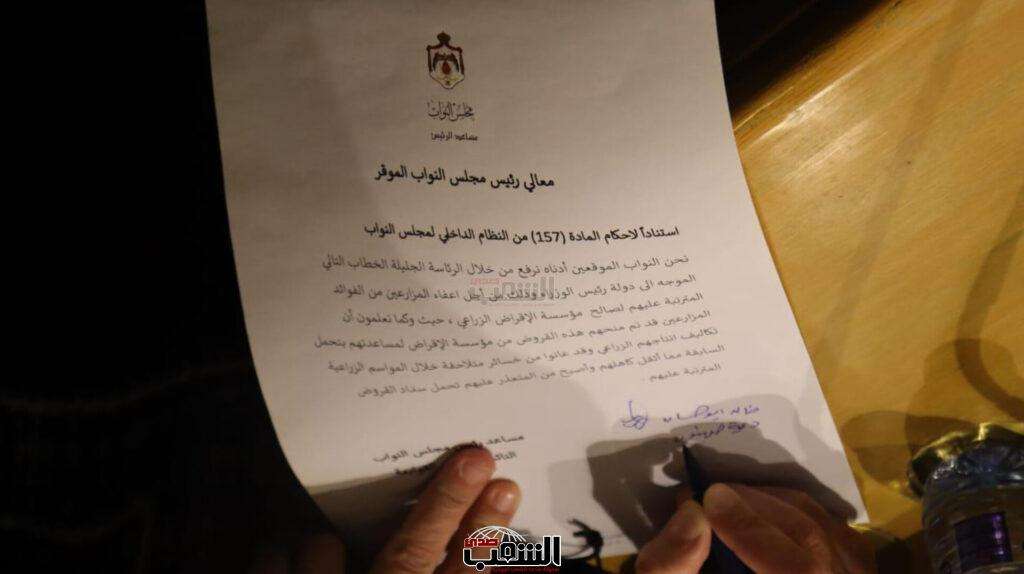 مجلس النواب
مساعد الرئيس
معالي رئيس مجلس النواب الموقر
استناداً لاحكام المادة (157) من النظام الداخلي لمجلس النواب
نحن النواب الموقعين أدناه نرفع من خلال الرئاسة الجليلة الخطاب التالي
الموجه الى دولة رئيس الوزراء وذلك من أجل اعفاء المزارعين من الفوائد
المترتبة عليهم لصالح مؤسسة الإقراض الزراعي ، حيث وكما تعلمون أن
المزارعين قد تم منحهم هذه القروض من مؤسسة الإقراض لمساعدتهم بتحمل
تكاليف انتاجهم الزراعي وقد عانوا من خسائر متلاحقة خلال المواسم الزراعية
السابقة مما أثقل كاهلهم وأصبح من المتعذر عليهم تحمل سداد القروض
المترتبة عليهم .
مساعد مجلس النواب
صدى الشعب